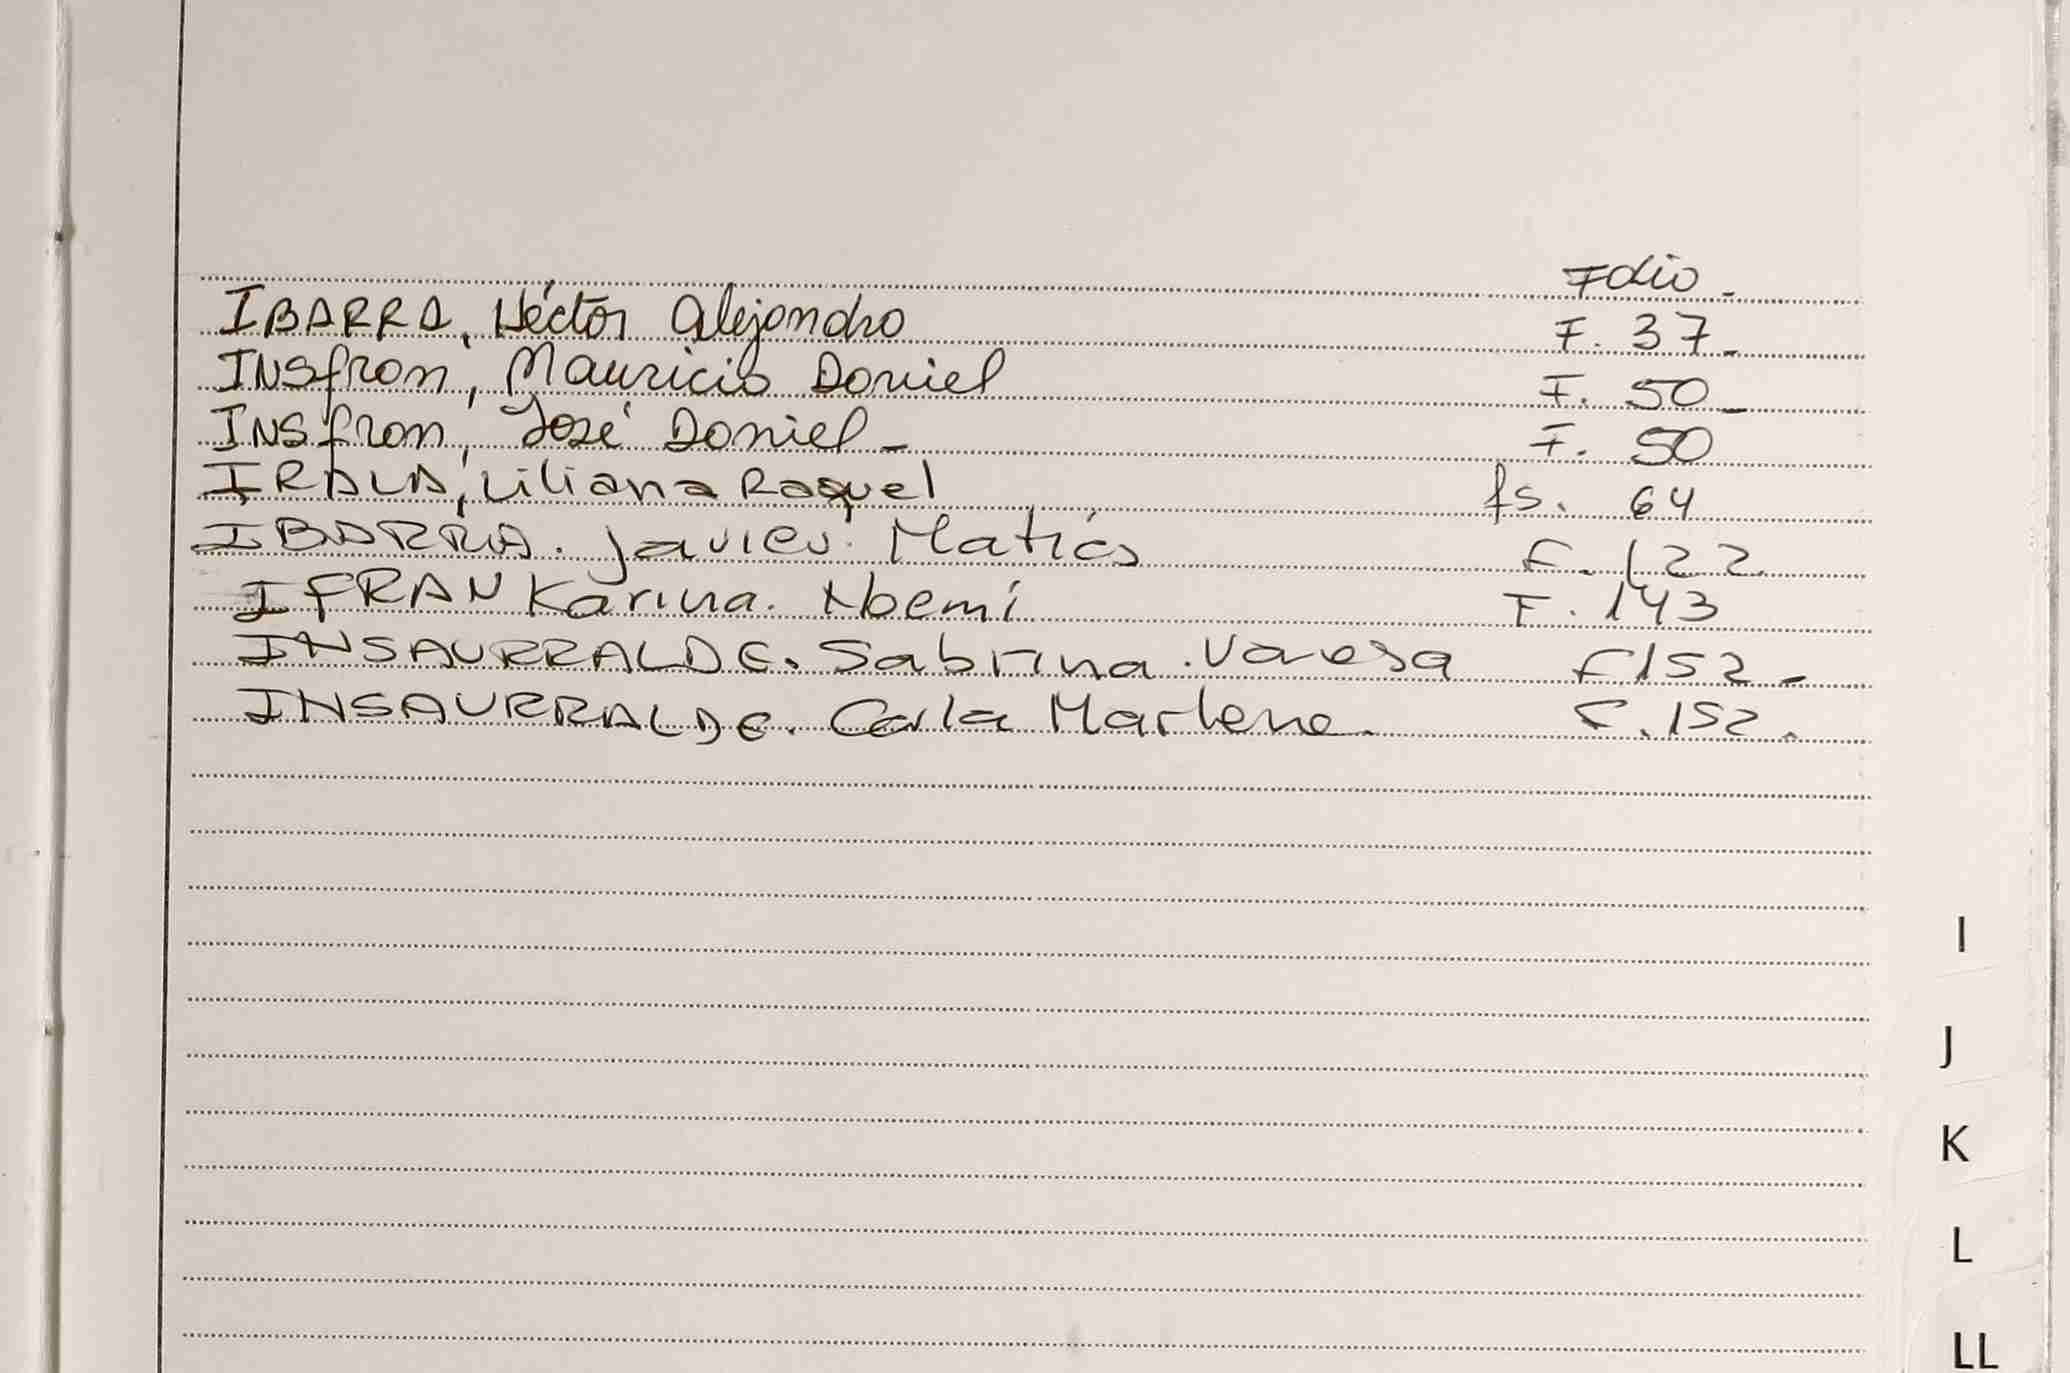 Folio -
IBARRA, Héctor Alejandro F. 37 -
INSfran, Mauricio Daniel F. 50 -
INSfran, José Daniel - F. 50
IRALA, Liliana Raquel fs. 64
IBARRA. Javier. Matías F. 122.
IFRAN Karina. Noemí F. 143
INSAURRALDE. Sabrina. Vanesa F 152 -
INSAURRALDE. Carla Marlene. F. 152.
I
J
K
L
LL